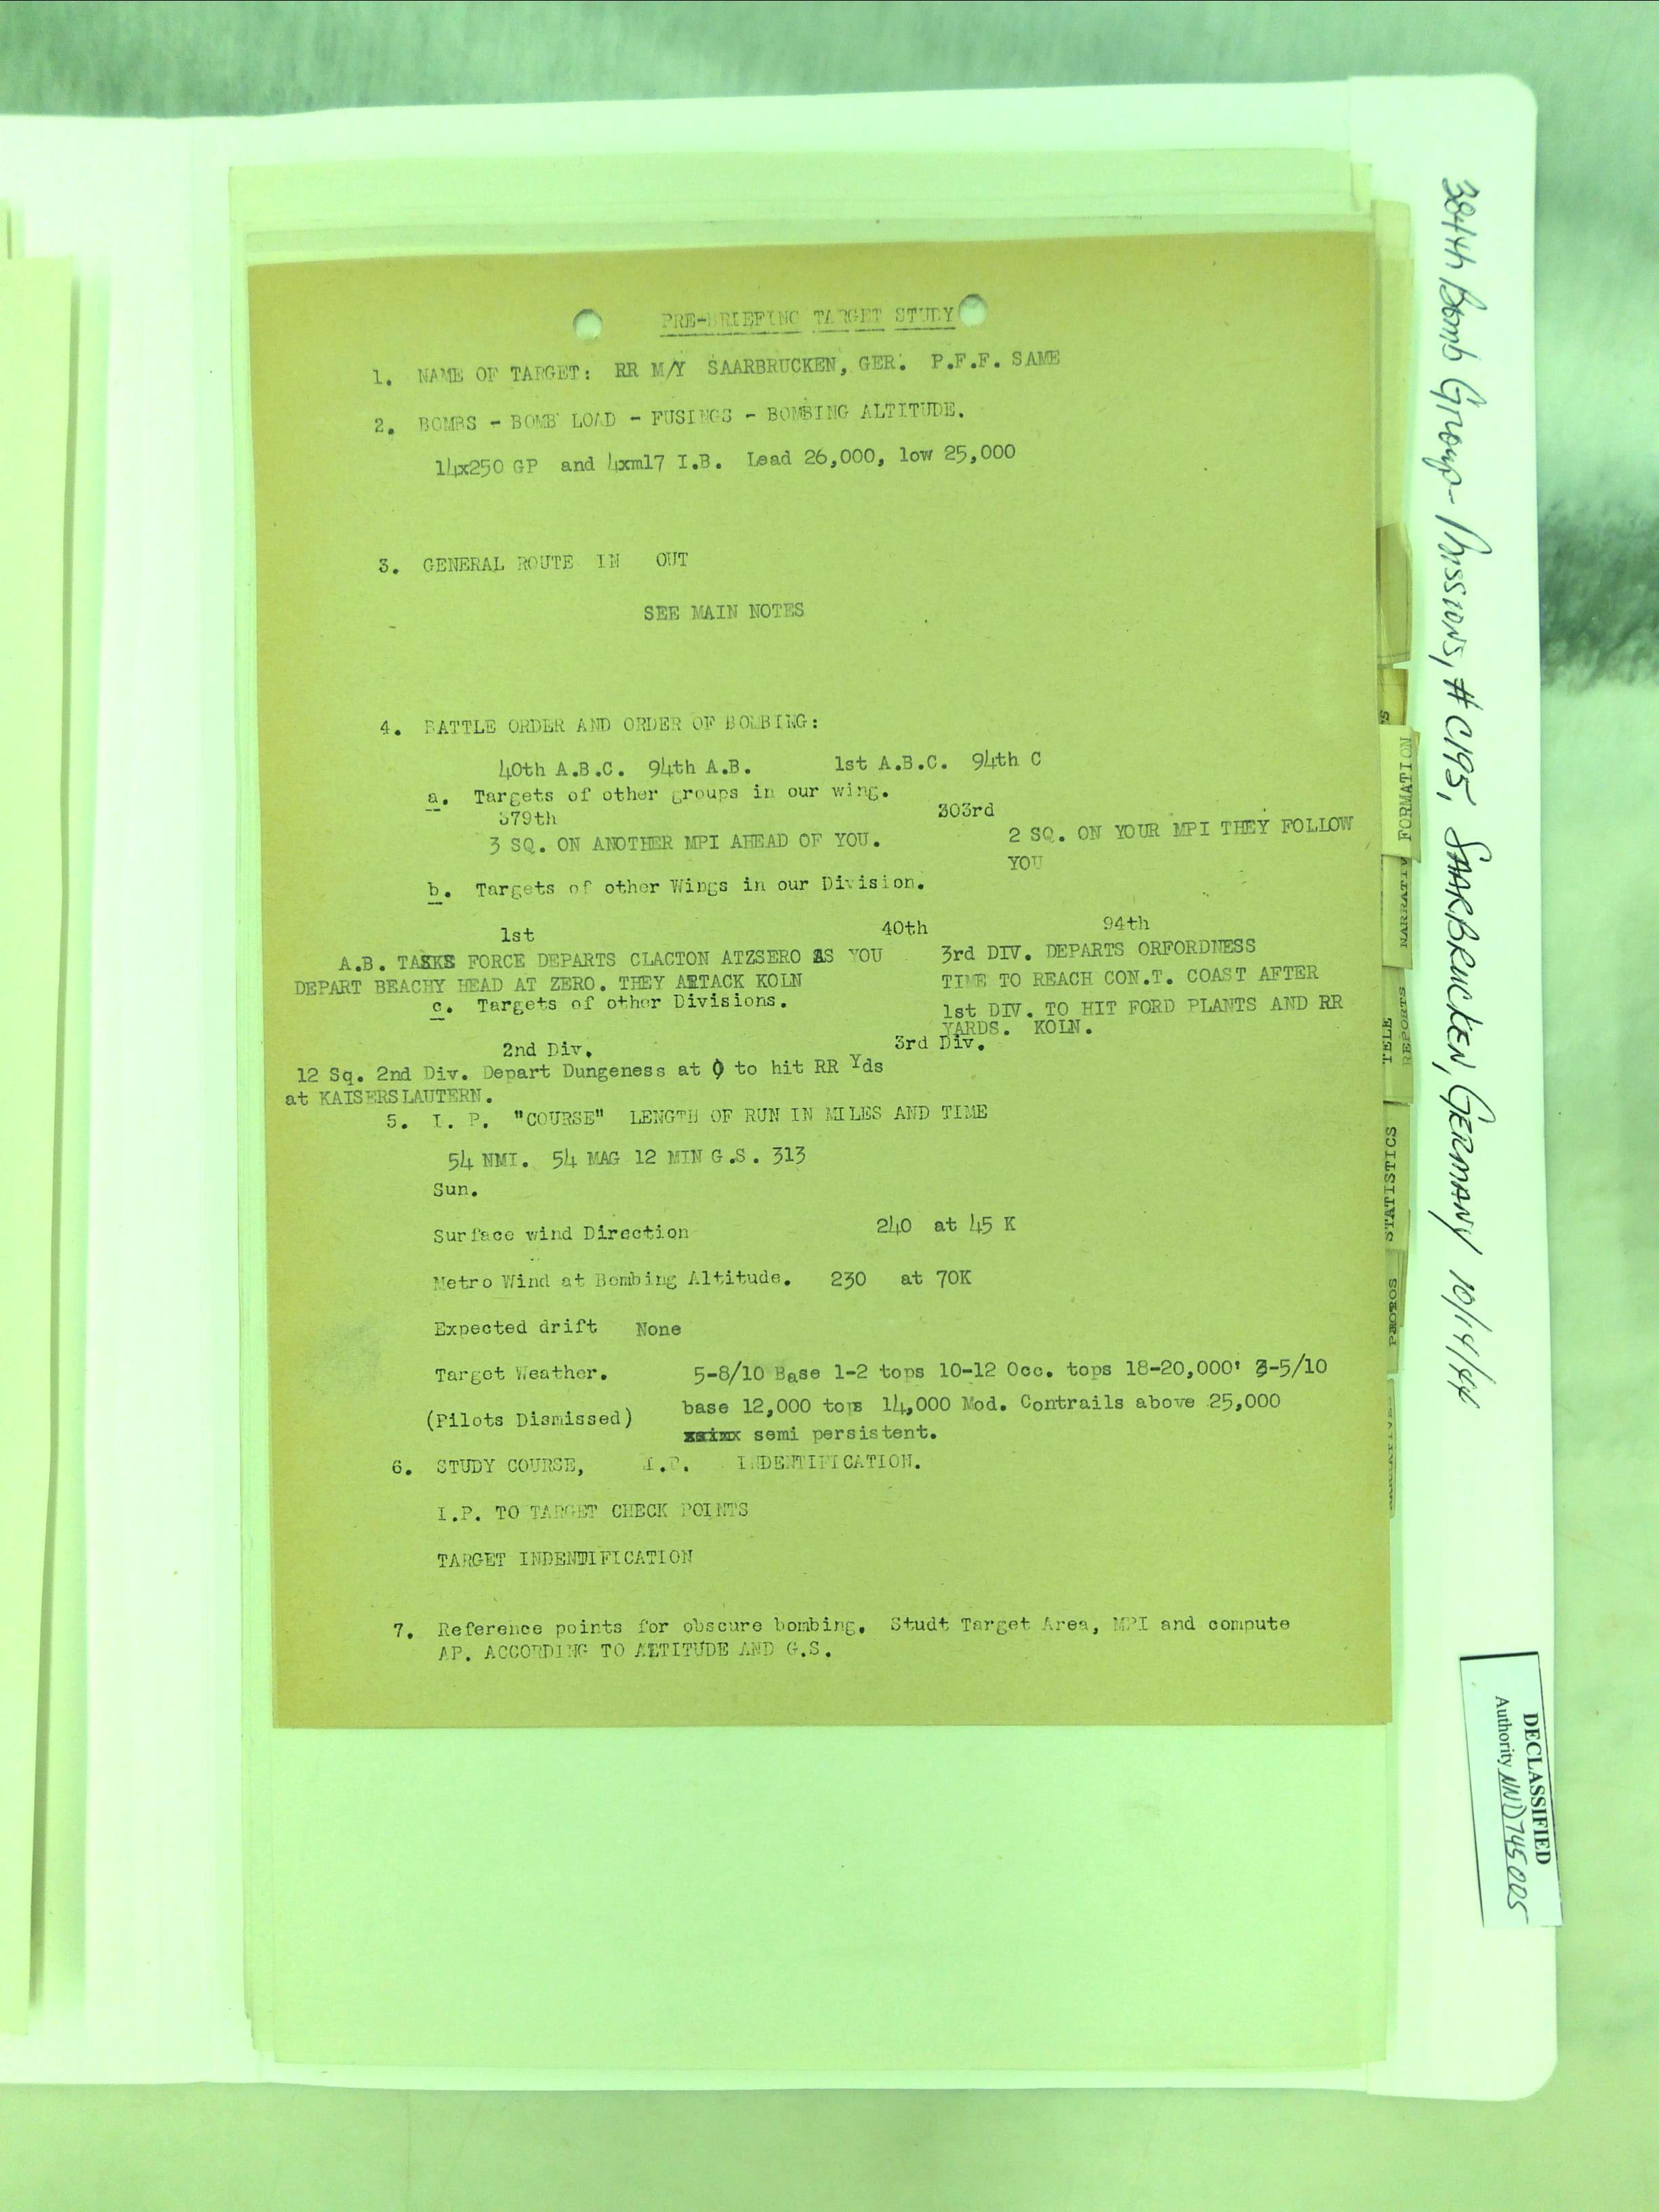 PRE-BRIEFING TARGET STUDY
1. NAME OF TARGET: RR M/Y SAARBRUCKEN, GER. P.F.F. SAME
2. BOMBS - BOMB LOAD - FUSINGS - BOMBING ALTITUDE.
14x250 GP and 4xm17 I.B. Lead 26,000, low 25,000
3. GENERAL ROUTE IN OUT
SEE MAIN NOTES
4. BATTLE ORDER AND ORDER OF BOMBING:
40th A.B.C. 94th A.B. 1st A.B.C. 94th C
a. Targets of other groups in our wing.
379th 303rd
3 SQ. ON ANOTHER MPI AHEAD OF YOU. 2 SQ. ON YOUR MPI THEY FOLLOW
YOU
b. Targets of other Wings in our Division.
1st 40th 94th
A.B. TASKS FORCE DEPARTS CLACTON ATZSERO AS YOU 3rd DIV. DEPARTS ORFORDNESS
DEPART BEACHY HEAD AT ZERO. THEY ATTACK KOLN TIME TO REACH CON.T. COAST AFTER
c. Targets of other Divisions. 1st DIV. TO HIT FORD PLANTS AND RR
YARDS. KOLN.
2nd Div. 3rd Div.
12 Sq. 2nd Div. Depart Dungeness at 0 to hit RR Yds
at KAISERSLAUTERN.
5. I. P. "COURSE" LENGTH OF RUN IN MILES AND TIME
54 NMI. 54 MAG 12 MIN G.S. 313
Sun.
Surface wind Direction 240 at 45 K
Metro Wind at Bombing Altitude. 230 at 70K
Expected drift None
Target Weather. 5-8/10 Base 1-2 tops 10-12 Occ. tops 18-20,000' 3-5/10
(Pilots Dismissed) base 12,000 tops 14,000 Mod. Contrails above 25,000
semi persistent.
6. STUDY COURSE, I.P. INDENTIFICATION.
I.P. TO TARGET CHECK POINTS
TARGET INDENTIFICATION
7. Reference points for obscure bombing. Studt Target Area, MPI and compute
AP. ACCORDING TO ALTITUDE AND G.S.
384th Bomb Group - Missions, #C195, SAARBRUCKEN, GERMANY 10/14/44
FORMATION
NARRATIV
TELE
REPORTS
STATISTICS
PHOTOS
DECLASSIFIED
Authority NND745005